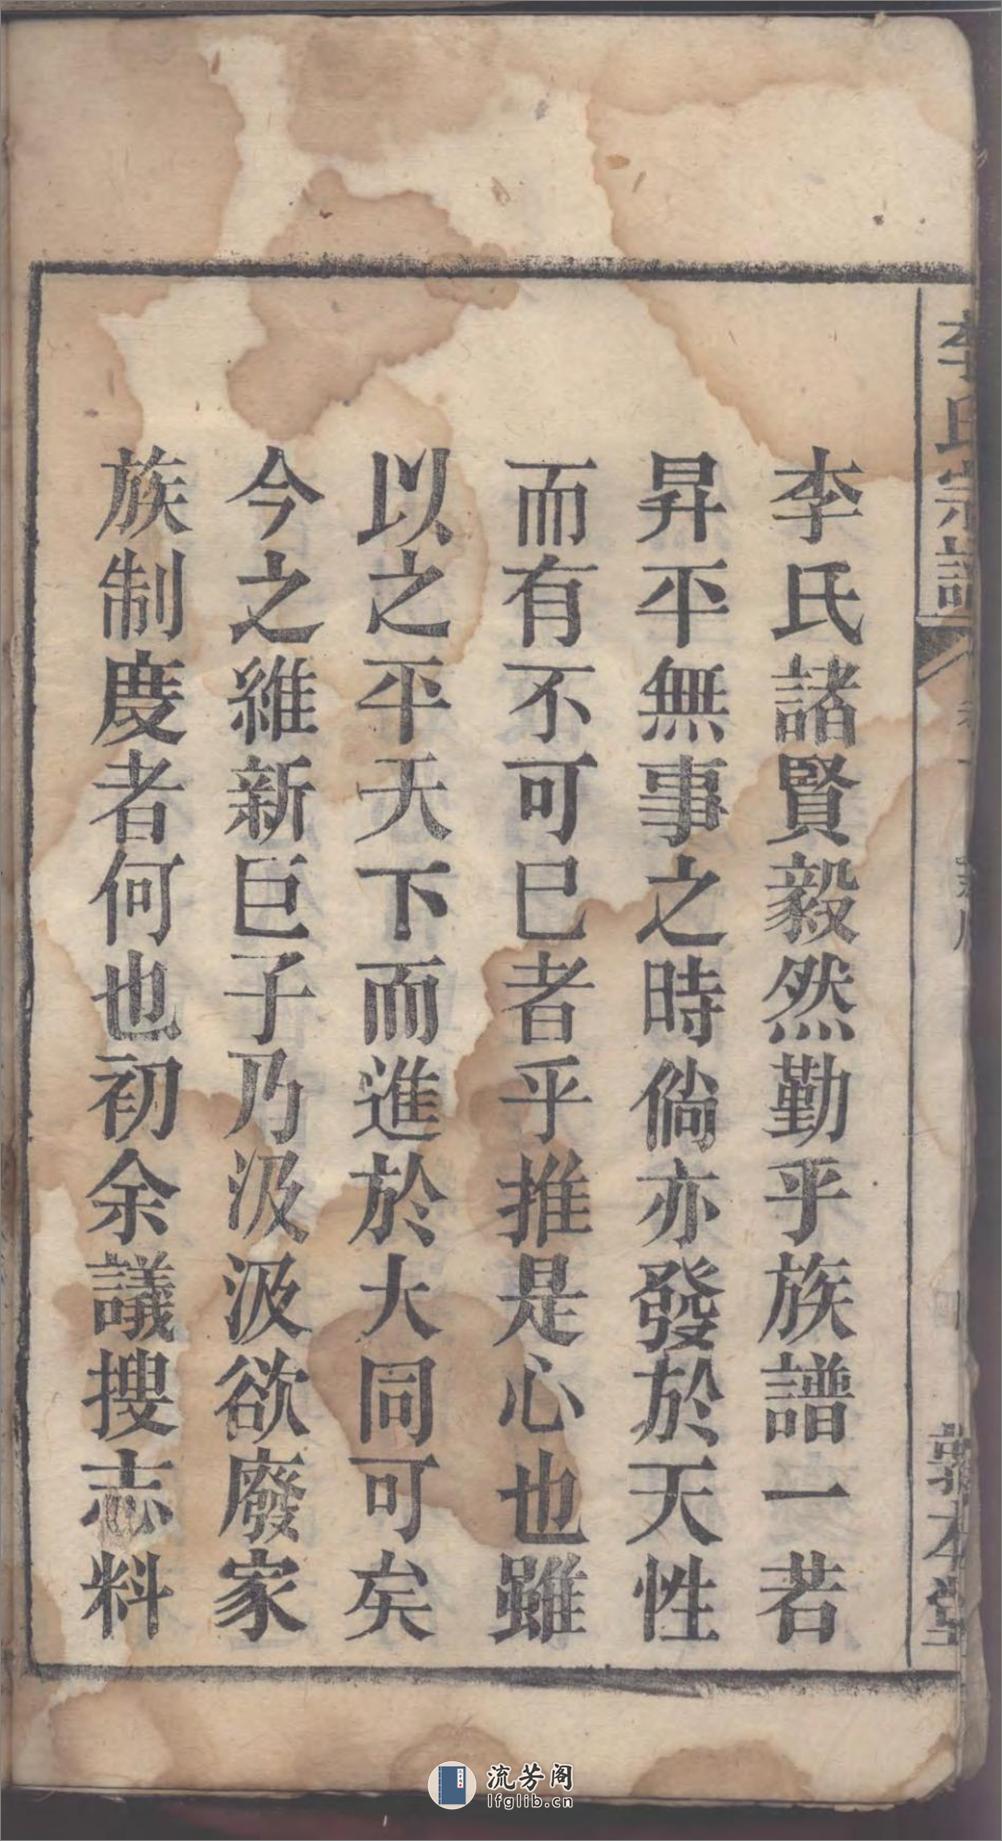 李氏諸賢毅然勤乎族譜一若
昇平無事之時倘亦發於天性
而有不可已者乎推是心也雖
以之平天下而進於大同可矣
今之維新巨子乃汲汲欲廢家
族制度者何也初余議搜志料
李氏宗譜
敦本堂
流芳阁
lfglib.cn